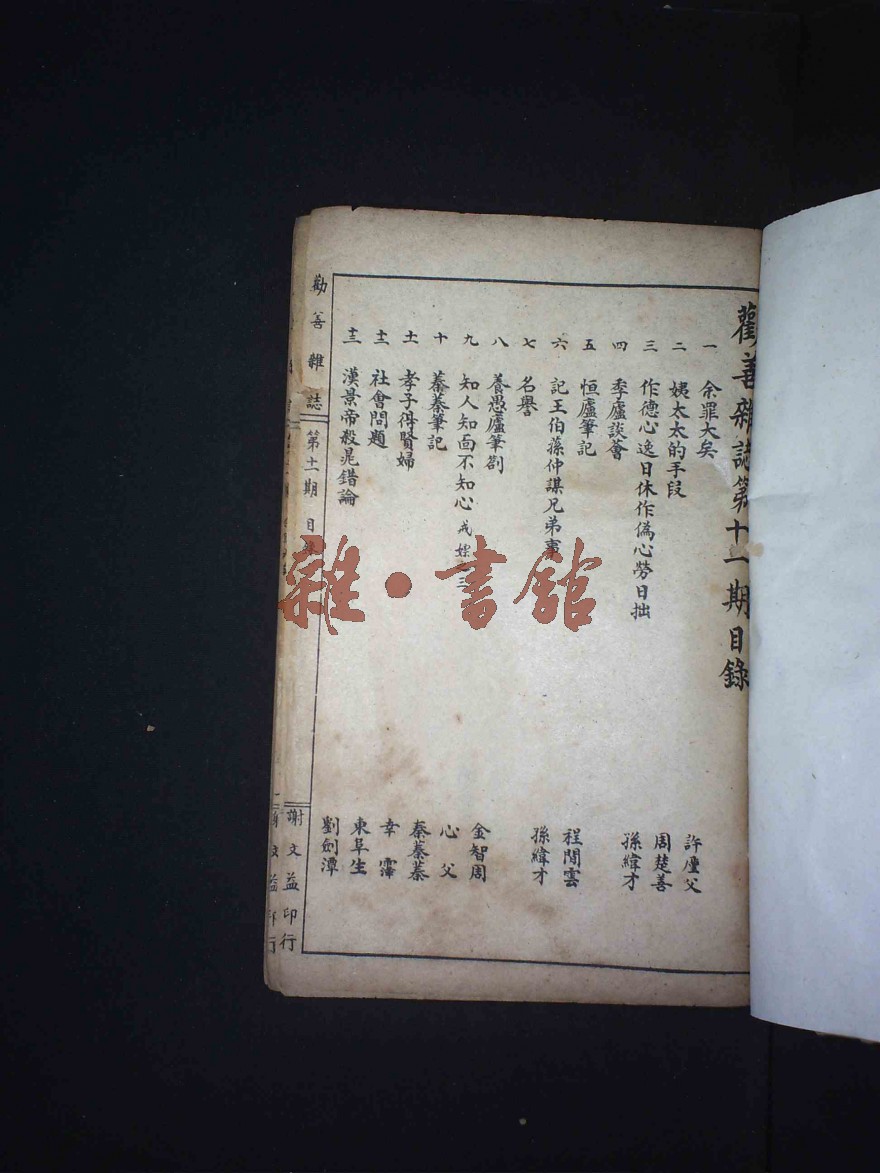 勸善雜誌第十一期目錄
一 余罪大矣 許廑父
二 姨太太的手段 周楚善
三 作德心逸日休作偽心勞日拙 孫緯才
四 季廬談薈
五 恒廬筆記 程閒雲
六 記王伯蓀仲謀兄弟事 孫緯才
七 名譽
八 養愚廬筆劄 金智周
九 知人知面不知心 戒嫖 三 心父
十 蓁蓁筆記 秦蓁蓁
十一 孝子得賢婦 幸霈
十二 社會問題 東阜生
十三 漢景帝殺晁錯論 劉劍潭
勸善雜誌 第十一期 目錄 一 謝文益印行
雜·書館